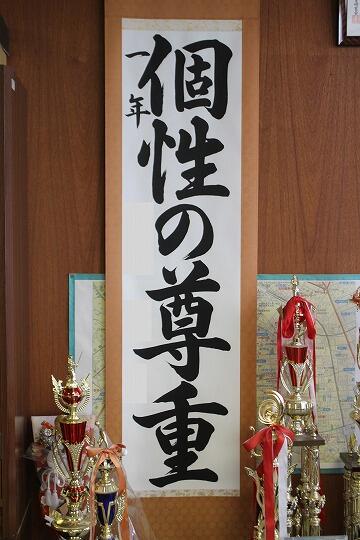 個性の尊重
一年